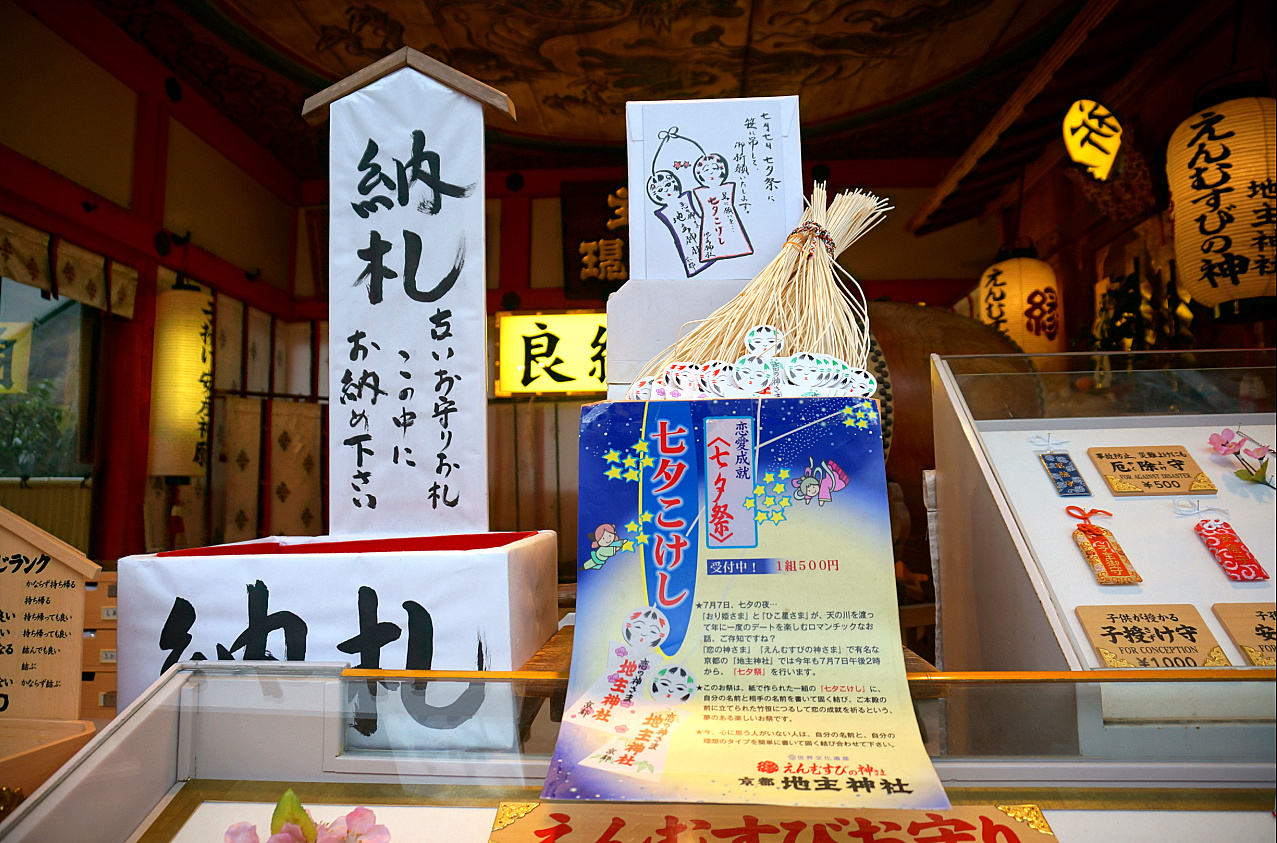 納札
古いお守りお札
この中に
お納め下さい
納札
七夕こけし
七夕祭に
笹に吊して、
御祈願いたします。
七夕こけし
地主神社
良縁
えんむすびの神
地主神社
えんむすび
縁
恋愛成就
〈七夕祭〉
七夕こけし
受付中！ 1組500円
★7月7日、七夕の夜…
「おり姫さま」と「ひこ星さま」が、天の川を渡っ
て年に一度のデートを楽しむロマンチックなお
話、ご存知ですね？
「恋の神さま」「えんむすびの神さま」で有名な
京都の「地主神社」では今年も7月7日午後2時
から、「七夕祭」を行います。
★このお祭は、紙で作られた一組の「七夕こけし」に、
自分の名前と相手の名前を書いて固く結び、ご本殿の
前に立てられた竹笹につるして恋の成就を祈るという、
夢のある楽しいお祭です。
★今、心に思う人がいない人は、自分の名前と、自分の
理想のタイプを簡単に書いて固く結び合わせて下さい。
恋の神さま
地主神社
京都
恋の神さま
地主神社
京都
世界文化遺産
えんむすびの神さま
京都 地主神社
事故防止、災難よけに
厄除け守
FOR AGAINST DISASTER
¥500
子供が授かる
子授け守
FOR CONCEPTION
¥1,000
じランク
かならず持ち帰る
持ち帰る
持ち帰っても良い
持ち帰っても良い
結んでも良い
結ぶ
かならず結ぶ
えんむすびお守り